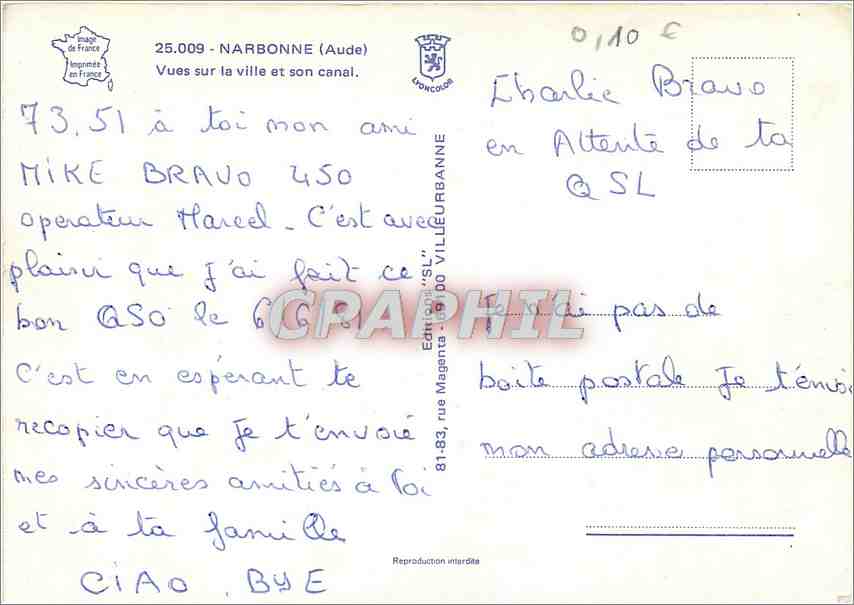 Image
de France
Imprimée
en France
25.009 - NARBONNE (Aude)
Vues sur la ville et son canal.
LYONCOLOR
0,10 €
73.51 à toi mon ami
MIKE BRAVO 450
operateur Marcel - C'est avec
plaisir que j'ai fait ce
bon QSO le 6 6 81
C'est en espérant te
recopier que je t'envoie
mes sincères amitiés à toi
et à ta famille
CIAO . BYE
Editions "SL"
81-83, rue Magenta - 69100 VILLEURBANNE
Charlie Bravo
en Attente de ta
QSL
Je n'ai pas de
boite postale Je t'émoi
mon adresse personnelle
CPAPHIL
Reproduction interdite